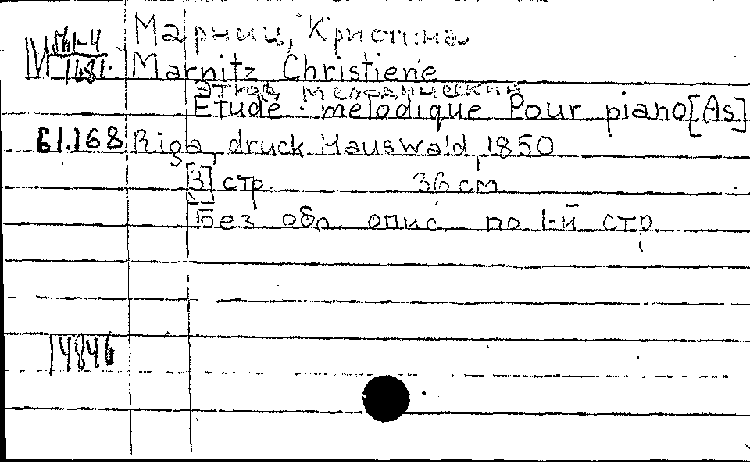 Марниц, Кристина
Marnitz Christiene
Этюд мелодический
Etude melodique Pour piano [As]
61.168 Riga, druck Hauswald, 1850
[3] стр. 36 см
Без обл. опис. по 1-й стр.
14846